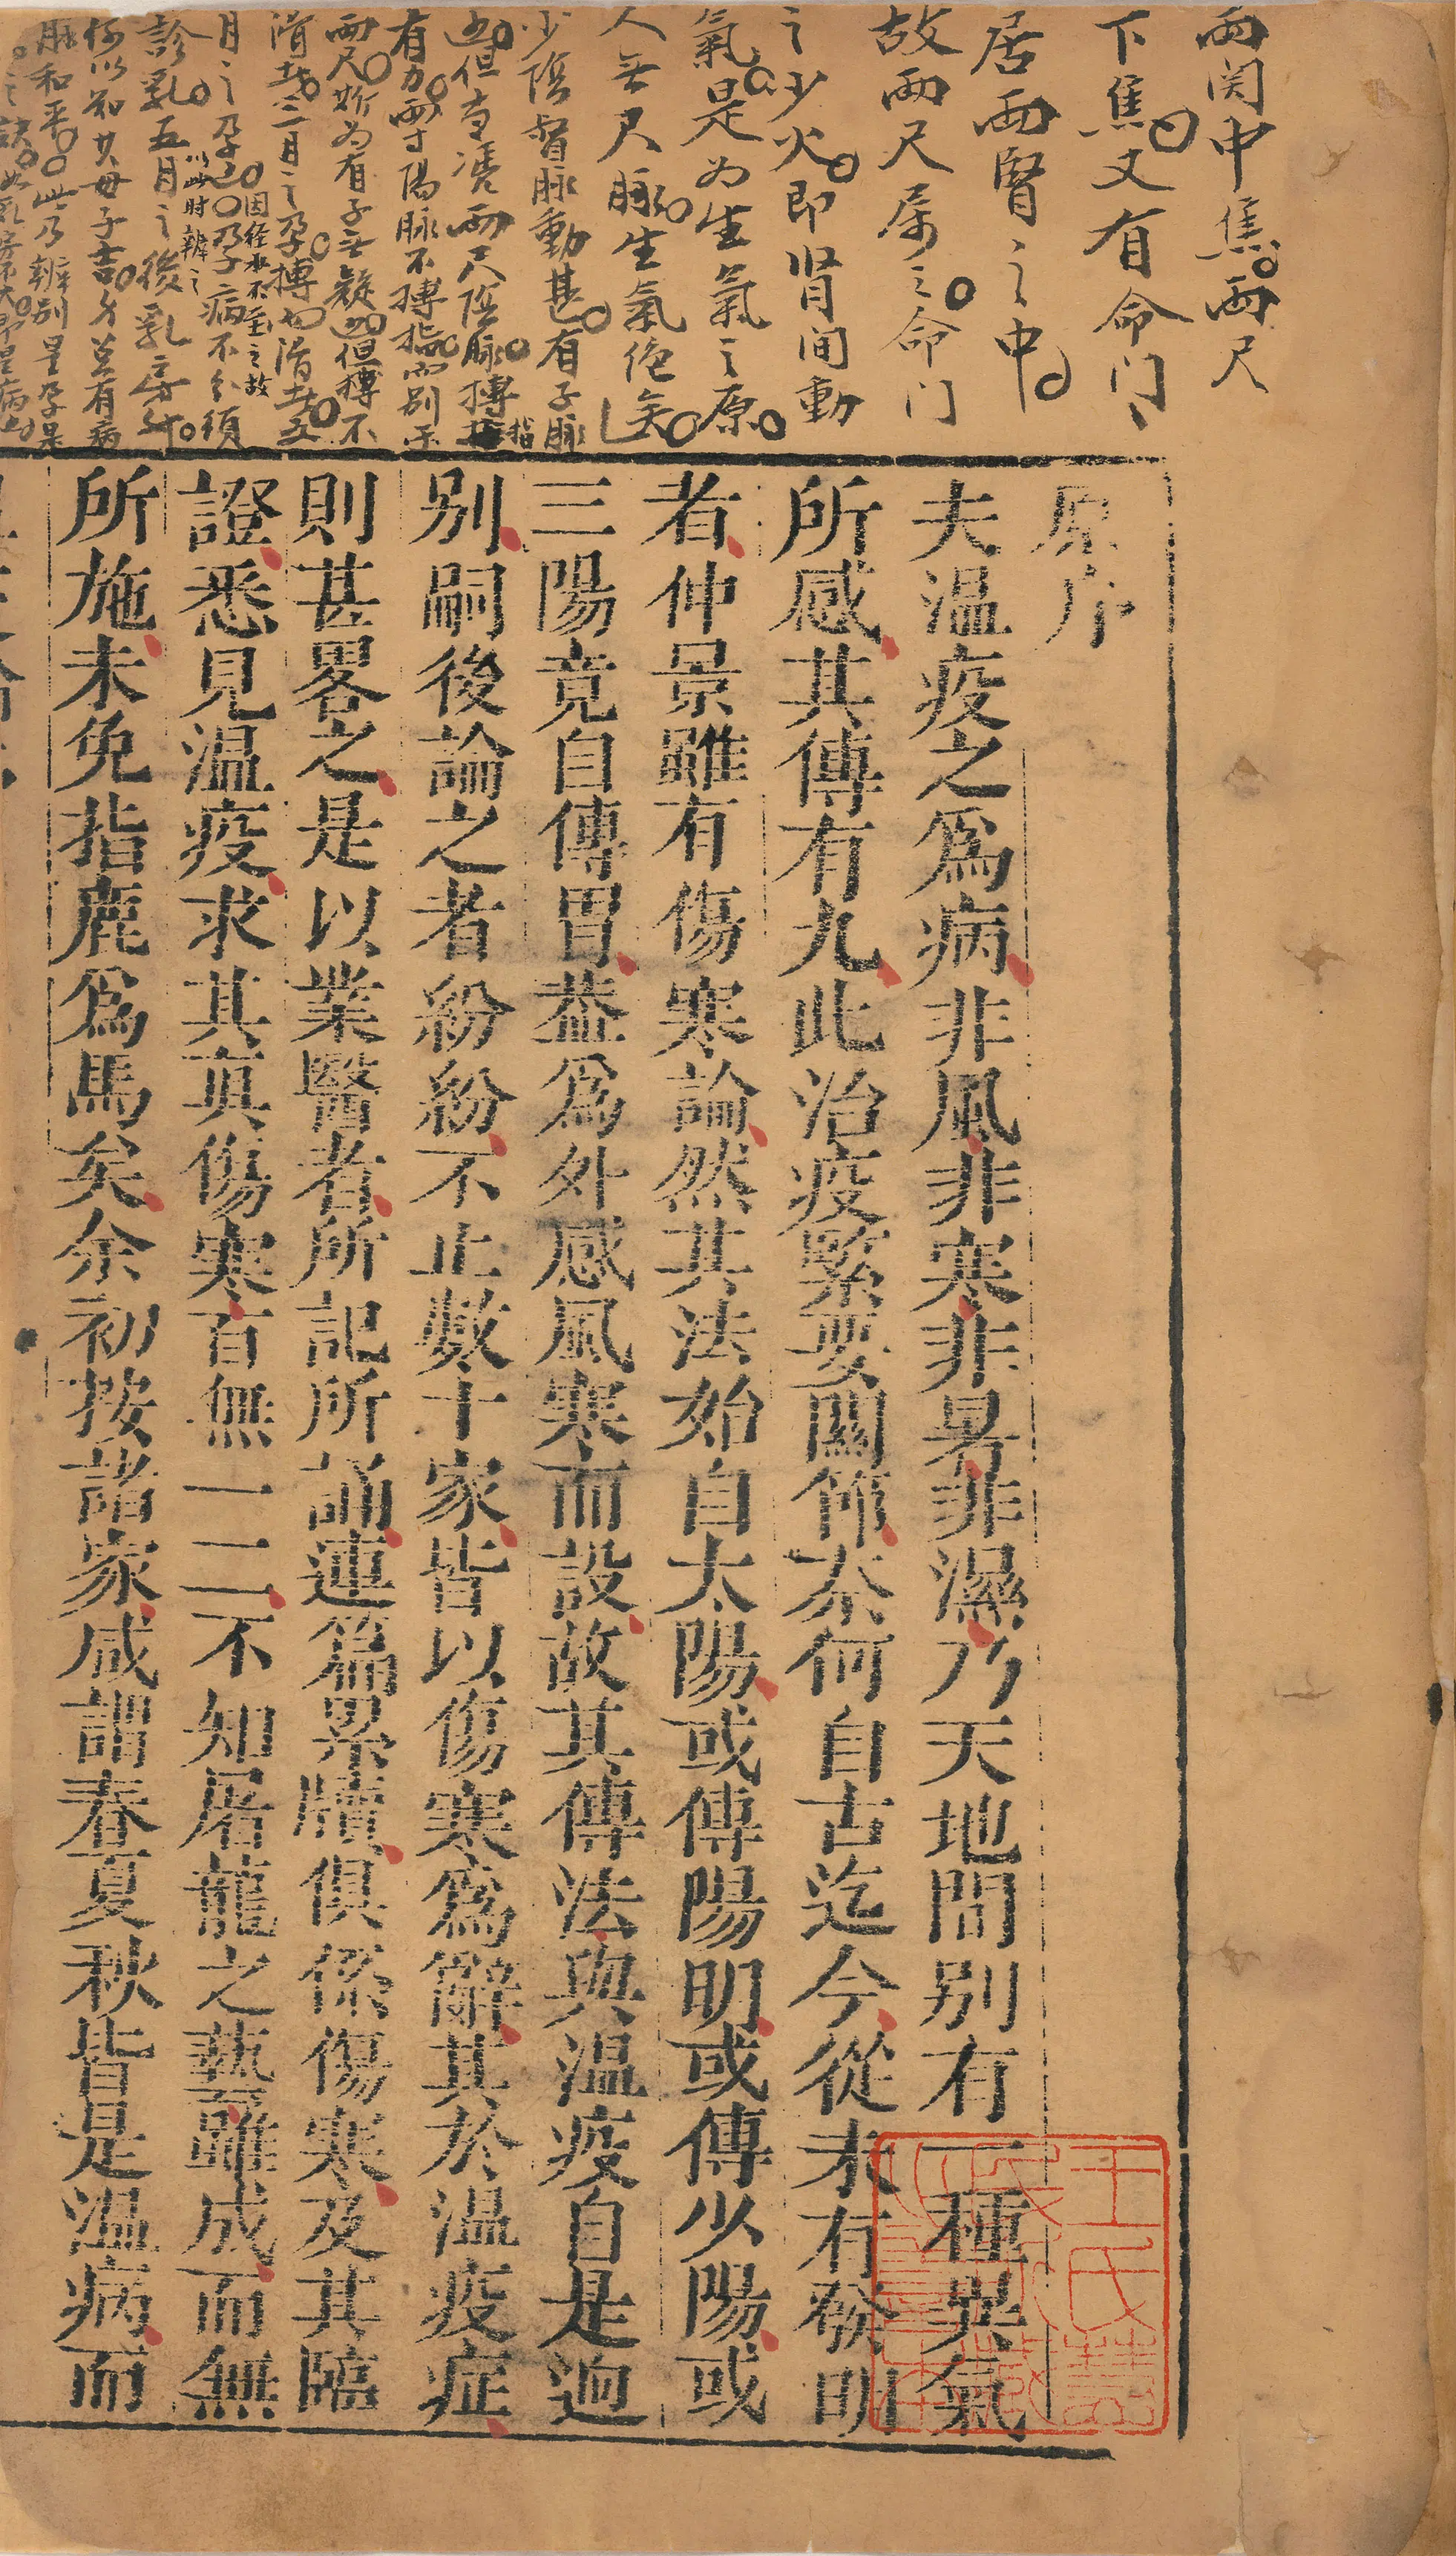 兩関中焦兩尺
下焦又有命门
居兩腎之中
故兩尺属之命门
之少火即肾间動
氣是为生氣之原
人無尺脉生氣絶矣
少陰督脉動甚有子脉
也但専凟兩尺陰脉搏指
有力兩寸陽脉不搏指而别于
兩尺斯为有子無疑也但搏不
滑者三月之孕搏而滑者五
月之孕也孕子病不分須
因经水不至之故
以此时辨之
診乳五月之後乳房
何以知其母子吉
脉和平此乃辨别是孕是
原序
夫温疫之爲病非風非寒非暑非濕乃天地間别有一種異氣
所感其傳有九此治疫緊要關節奈何自古迄今從未有發明
者仲景雖有傷寒論然其法始自太陽或傳陽明或傳少陽或
三陽竟自傳胃葢爲外感風寒而設故其傳法與温疫自是逈
别嗣後論之者紛紛不止數十家皆以傷寒爲辭其於温疫症
則甚畧之是以業醫者所記所誦連篇累牘俱係傷寒及其臨
證悉見温疫求其真傷寒百無一二不知屠龍之藝雖成而無
所施未免指鹿爲馬矣余初按諸家咸謂春夏秋皆是温病而